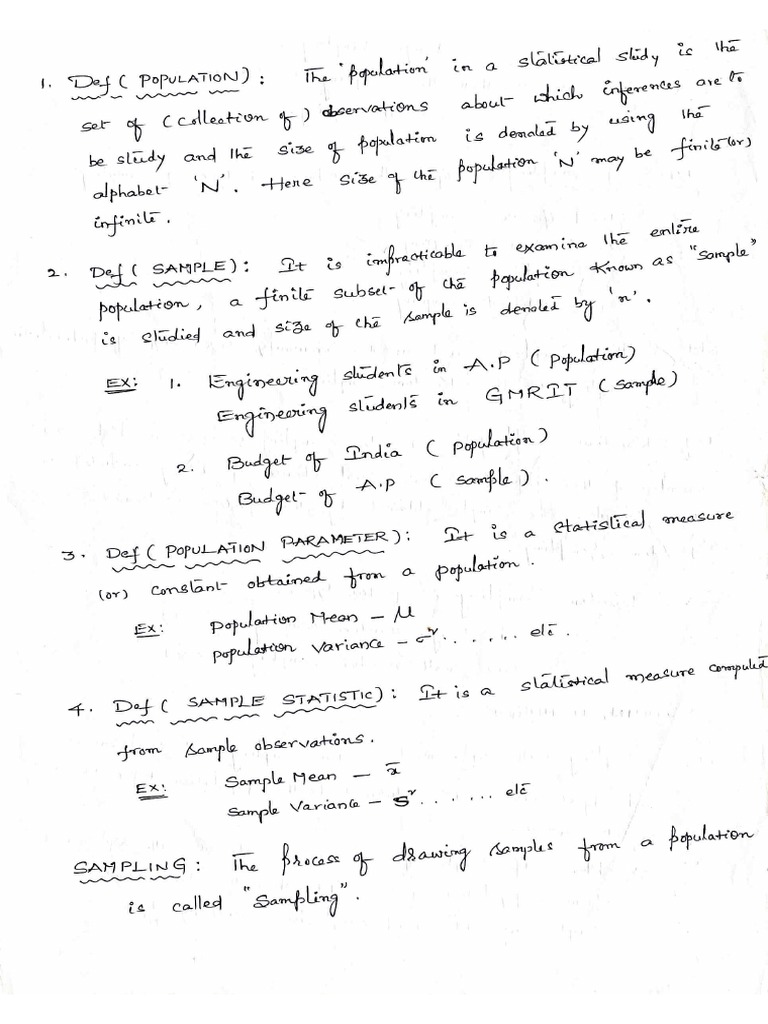 1. Def ( POPULATION ) : The 'population' in a statistical study is the
set of (collection of) observations about which inferences are to
be study and the size of population is denoted by using the
alphabet 'N'. Here size of the population 'N' may be finite (or)
infinite.
2. Def ( SAMPLE ) : It is impracticable to examine the entire
population, a finite subset of the population known as "sample"
is studied and size of the sample is denoted by 'n'.
EX: 1. Engineering students in A.P ( population )
Engineering students in GMRIT ( sample )
2. Budget of India ( population )
Budget of A.P ( sample ) .
3. Def ( POPULATION PARAMETER ) : It is a statistical measure
(or) constant obtained from a population .
Ex: population Mean - μ
population variance - σ² . . . . . . etc .
4. Def ( SAMPLE STATISTIC ) : It is a statistical measure computed
from sample observations .
Ex: Sample Mean - x̄
Sample Variance - s² . . . . . . etc
SAMPLING : The process of drawing samples from a population
is called "Sampling" .